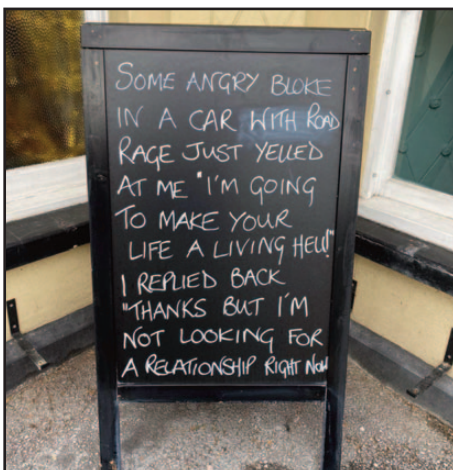 SOME ANGRY BLOKE
IN A CAR WITH ROAD
RAGE JUST YELLED
AT ME "I'M GOING
TO MAKE YOUR
LIFE A LIVING HELL!"
I REPLIED BACK
"THANKS BUT I'M
NOT LOOKING FOR
A RELATIONSHIP RIGHT NOW